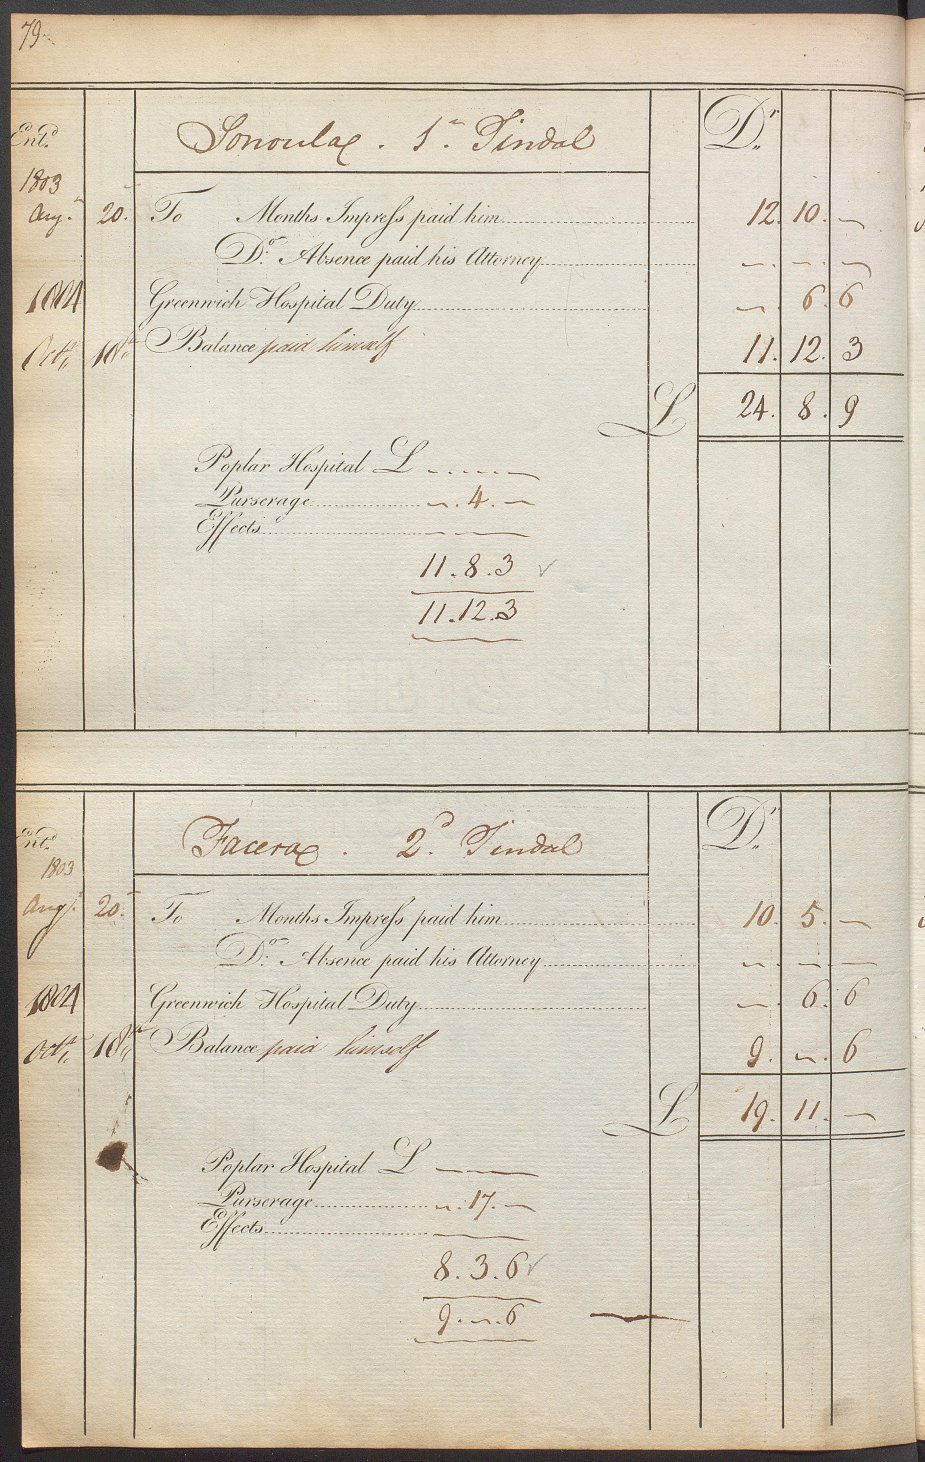 79
Ent.d Sonoulax . 1st Tindal Dr
1803
Augt 20. To Months Impress paid him 12. 10. —
Do. Absence paid his Attorney — — —
1804 Greenwich Hospital Duty —. 6. 6
Octr 18th Balance paid himself 11. 12. 3
£ 24. 8. 9
Poplar Hospital £ — — —
Purserage —. 4. —
Effects — — —
11. 8. 3
11. 12. 3
Ent.d Facerax . 2d Tindal Dr
1803
Augt 20. To Months Impress paid him 10. 5. —
Do. Absence paid his Attorney — — —
1804 Greenwich Hospital Duty —. 6. 6
Octr 18th Balance paid himself 9. —. 6
£ 19. 11. —
Poplar Hospital £ — — —
Purserage —. 17. —
Effects — — —
8. 3. 6
9. —. 6